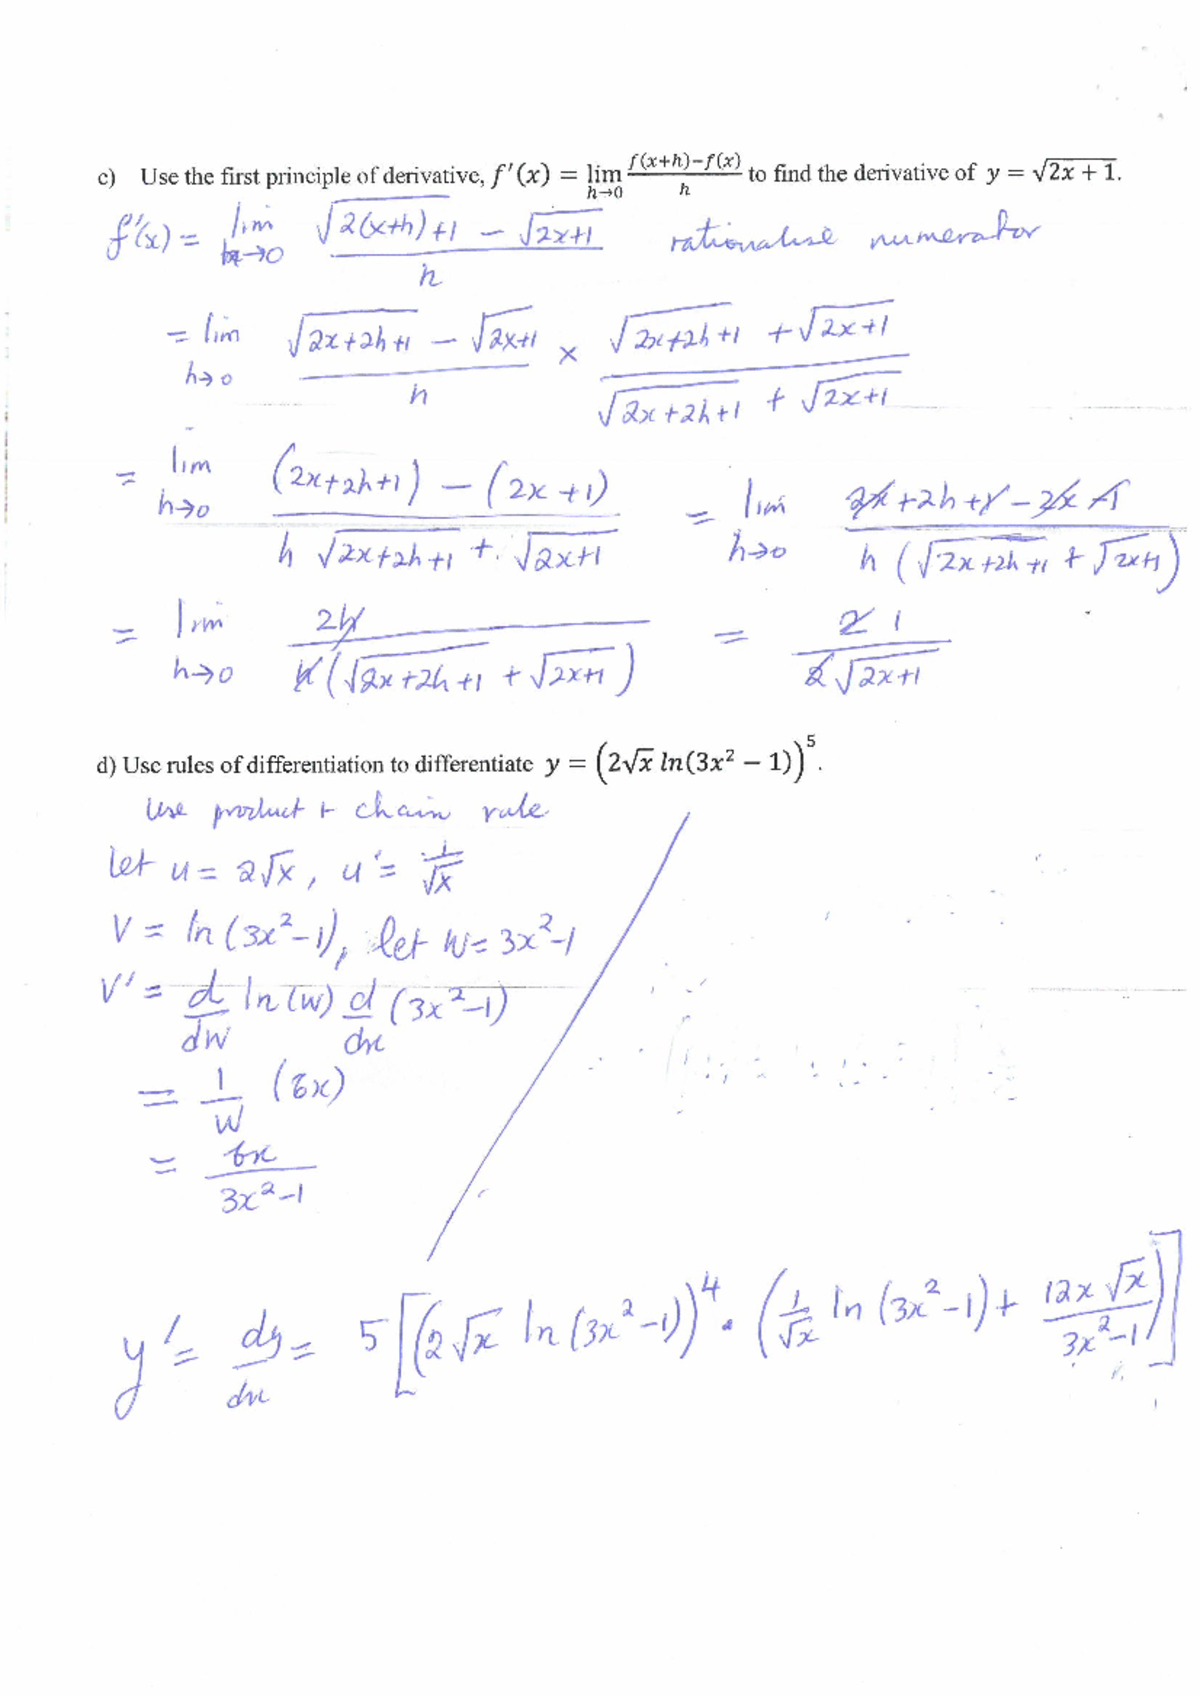 c) Use the first principle of derivative, f′(x) = lim h→0 (f(x+h)−f(x))/h to find the derivative of y = √(2x + 1).
f'(x) = lim h→0 (√(2(x+h)+1) − √(2x+1))/h rationalise numerator
= lim h→0 (√(2x+2h+1) − √(2x+1))/h × (√(2x+2h+1) + √(2x+1))/(√(2x+2h+1) + √(2x+1))
= lim h→0 ((2x+2h+1) − (2x+1))/(h √(2x+2h+1) + √(2x+1)) = lim h→0 (2x+2h+1−2x−1)/(h(√(2x+2h+1) + √(2x+1)))
= lim h→0 2h/(h(√(2x+2h+1) + √(2x+1))) = 2 1/(2√(2x+1))
d) Use rules of differentiation to differentiate y = (2√x ln(3x² − 1))⁵.
Use product + chain rule
let u = 2√x, u' = 1/√x
V = ln(3x²−1), let W = 3x²−1
V' = d/dW ln(W) d/dx (3x²−1)
= 1/W (6x)
= 6x/(3x²−1)
y' = dy/dx = 5[(2√x ln(3x²−1))⁴ · (1/√x ln(3x²−1) + 12x√x/(3x²−1))]